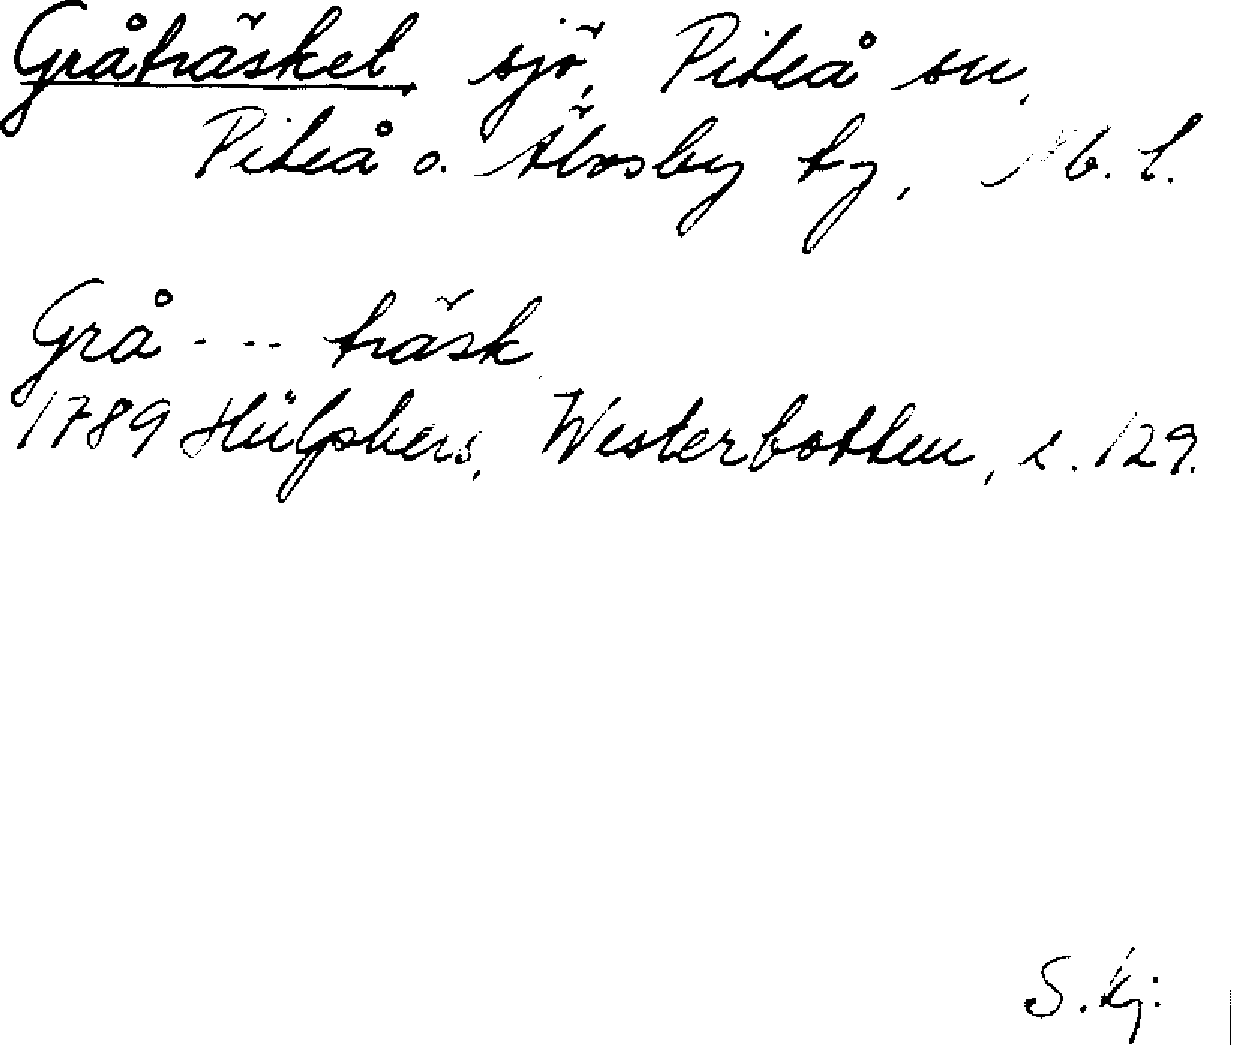 Gråträsket, sjö, Piteå sn,
Piteå o. Älvsby tg, Nb. l.
Grå - - - träsk
1789 Hülphers, Westerbotten, s. 129.
S. Kj.